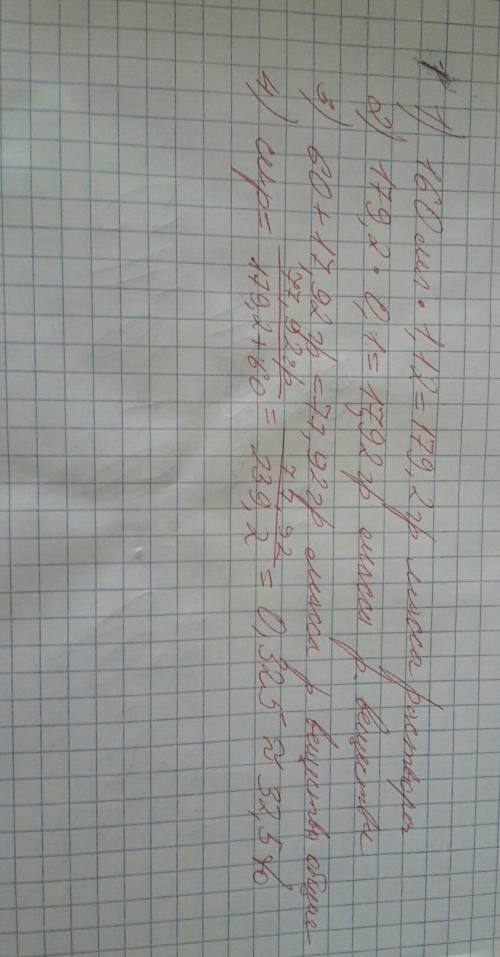 1) 160 мл · 1,12 = 179,2 гр масса раствора
2) 179,2 · 0,1 = 17,92 гр масса р. вещества
3) 60 + 17,92 гр = 77,92 гр масса р вещества общее
4) = 77,92 гр / 179,2 + 60 = 77,92 / 239,2 = 0,325 ≈ 32,5%